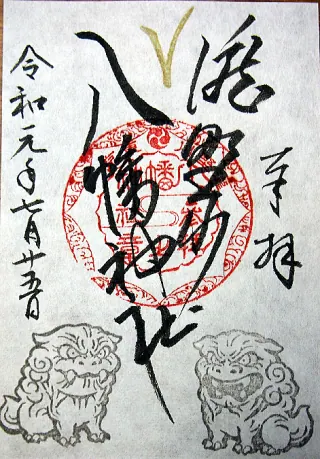 奉拝
瀧野川
八幡神社
令和元年七月廿五日